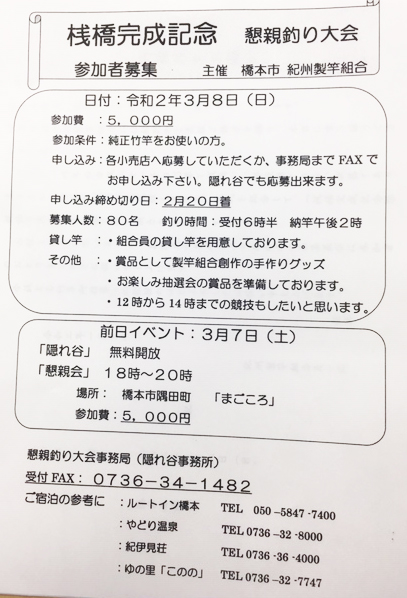 桟橋完成記念　懇親釣り大会
参加者募集　　主催　橋本市 紀州製竿組合
日付：令和２年３月８日（日）
参加費　：５，０００円
参加条件：純正竹竿をお使いの方。
申し込み：各小売店へ応募していただくか、事務局まで FAX で
お申し込み下さい。隠れ谷でも応募出来ます。
申し込み締め切り日：２月２０日着
募集人数：８０名　　釣り時間：受付６時半　納竿午後２時
貸し竿　：・組合員の貸し竿を用意しております。
その他　：・賞品として製竿組合創作の手作りグッズ
・お楽しみ抽選会の賞品を準備しております。
・12 時から 14 時までの競技もしたいと思います。
前日イベント：３月７日（土）
「隠れ谷」　無料開放
「懇親会」　１８時～２０時
場所：　橋本市隅田町　　「まごころ」
参加費：５，０００円
懇親釣り大会事務局（隠れ谷事務所）
受付 FAX：０７３６－３４－１４８２
ご宿泊の参考に　：ルートイン橋本　　TEL　050 -5847 -7400
：やどり温泉　　TEL 0736 -32 -8000
：紀伊見荘　　TEL 0736 -36 -4000
：ゆの里「このの」　TEL 0736 -32 -7747